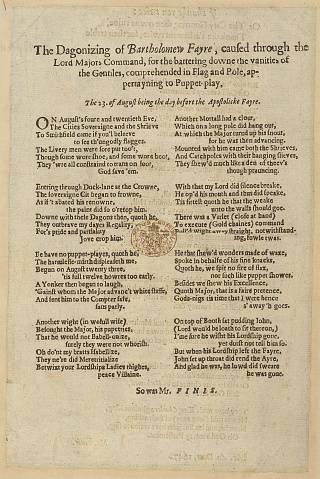 The Dagonizing of Bartholomew Fayre, caused through the
Lord Majors Command, for the battering downe the vanities of
the Gentiles, comprehended in Flag and Pole, ap-
pertayning to Puppet-play,
The 23. of August being the day before the Apostolicke Fayre.
ON August's foure and twentieth Eve,
The Cities Soveraigne and the Shrieve
To Smithfield came if you'l beleeve
to see th'ungodly flagges.
The Livery men were sore put too't,
Though some wore shooe, and some wore boot,
They 'wre all constrained to march on foot,
God save 'em.
Entring through Duck-lane at the Crowne,
The soveraigne Cit began to frowne,
As if 't abated his renowne,
the paint did so o'retop him.
Downe with these Dagons then, quoth he,
They outbrave my dayes Regality;
For's pride and partiality
Jove crop him.
Ile have no puppet-players, quoth he,
The harmlesse-mirth displeaseth me,
Begun on August twenty three,
'tis full twelve howres too early.
A Yonker then began to laugh,
'Gainst whom the Major advanc't white staffe,
And sent him to the Compter safe,
sans parly.
Another wight (in wofull wise)
Besought the Major, his puppetries,
That he would not Babell-onize,
surely they were not whorish.
Oh do'nt my bratts Isabellize,
They ne've did Meretricialize
Betwixt your Ladyships Ladies thighes,
peace Villaine.
Another Mortall had a clout,
Which on a long pole did hang out,
At which the Major turned up his snout,
for he was then advancing.
Mounted with him came both the Shrieves,
And Catchpoles with their hanging sleeves,
They shew'd much like a den of theev's
though prauncing.
With that my Lord did silence breake,
He op't his mouth and thus did speake,
Tis fittest quoth he that the weake
unto the walls should goe.
There was a Varlet (close at hand)
To execute (Gold chaines) command
streight, notwithstand-
ing, fowle twas.
He that shew'd wonders made of waxe,
Spoke in behalfe of his fine knacks,
Quoth he, we spit no fire of flax,
nor such like puppet showes.
Besides we shew his Excellence,
Quoth Major, that is a faire pretence,
Gods-nigs its time that I were hence
a'way he goes.
On top of Booth sat pudding John,
(Lord would be loath to sit thereon,)
I'me sure he wisht his Lordship gone,
yet durst not tell him so.
But when his Lordship left the Fayre,
John set up throat did rend the Ayre,
And glad he was, he lowd did sweare
he was gone.
So was Mr. FINIS.